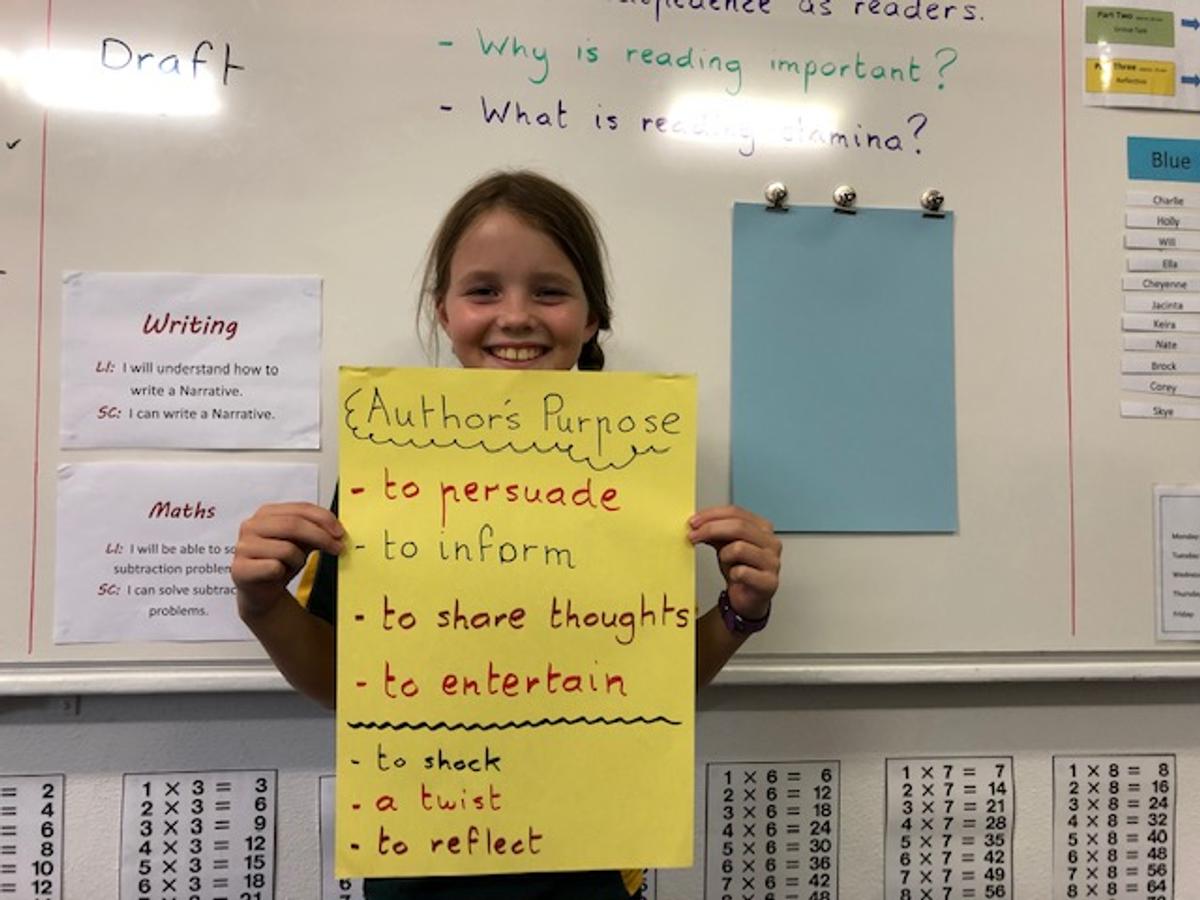 as readers.
Draft
- Why is reading important?
- What is reading stamina?
Part Two
Part Three
Reflective
Blue
Charlie
Holly
Will
Ella
Cheyenne
Jacinta
Keira
Nate
Brock
Corey
Skye
Writing
LI: I will understand how to
write a Narrative.
SC: I can write a Narrative.
Maths
LI: I will be able to
subtraction
SC: I can solve
problems.
Author's Purpose
- to persuade
- to inform
- to share thoughts
- to entertain
- to shock
- a twist
- to reflect
Monday
Tuesday
Thursday
Friday
= 2
= 4
= 6
= 8
= 10
= 12
1 × 3 = 3
2 × 3 = 6
3 × 3 = 9
4 × 3 = 12
5 × 3 = 15
6 × 3 = 18
6
1 × 6 = 6
2 × 6 = 12
3 × 6 = 18
4 × 6 = 24
5 × 6 = 30
6 × 6 = 36
7 × 6 = 42
1 × 7 = 7
2 × 7 = 14
3 × 7 = 21
4 × 7 = 28
5 × 7 = 35
6 × 7 = 42
7 × 7 = 49
8 × 7 = 56
1 × 8 = 8
2 × 8 = 16
3 × 8 = 24
4 × 8 = 32
5 × 8 = 40
6 × 8 = 48
7 × 8 = 56
8 × 8 = 64